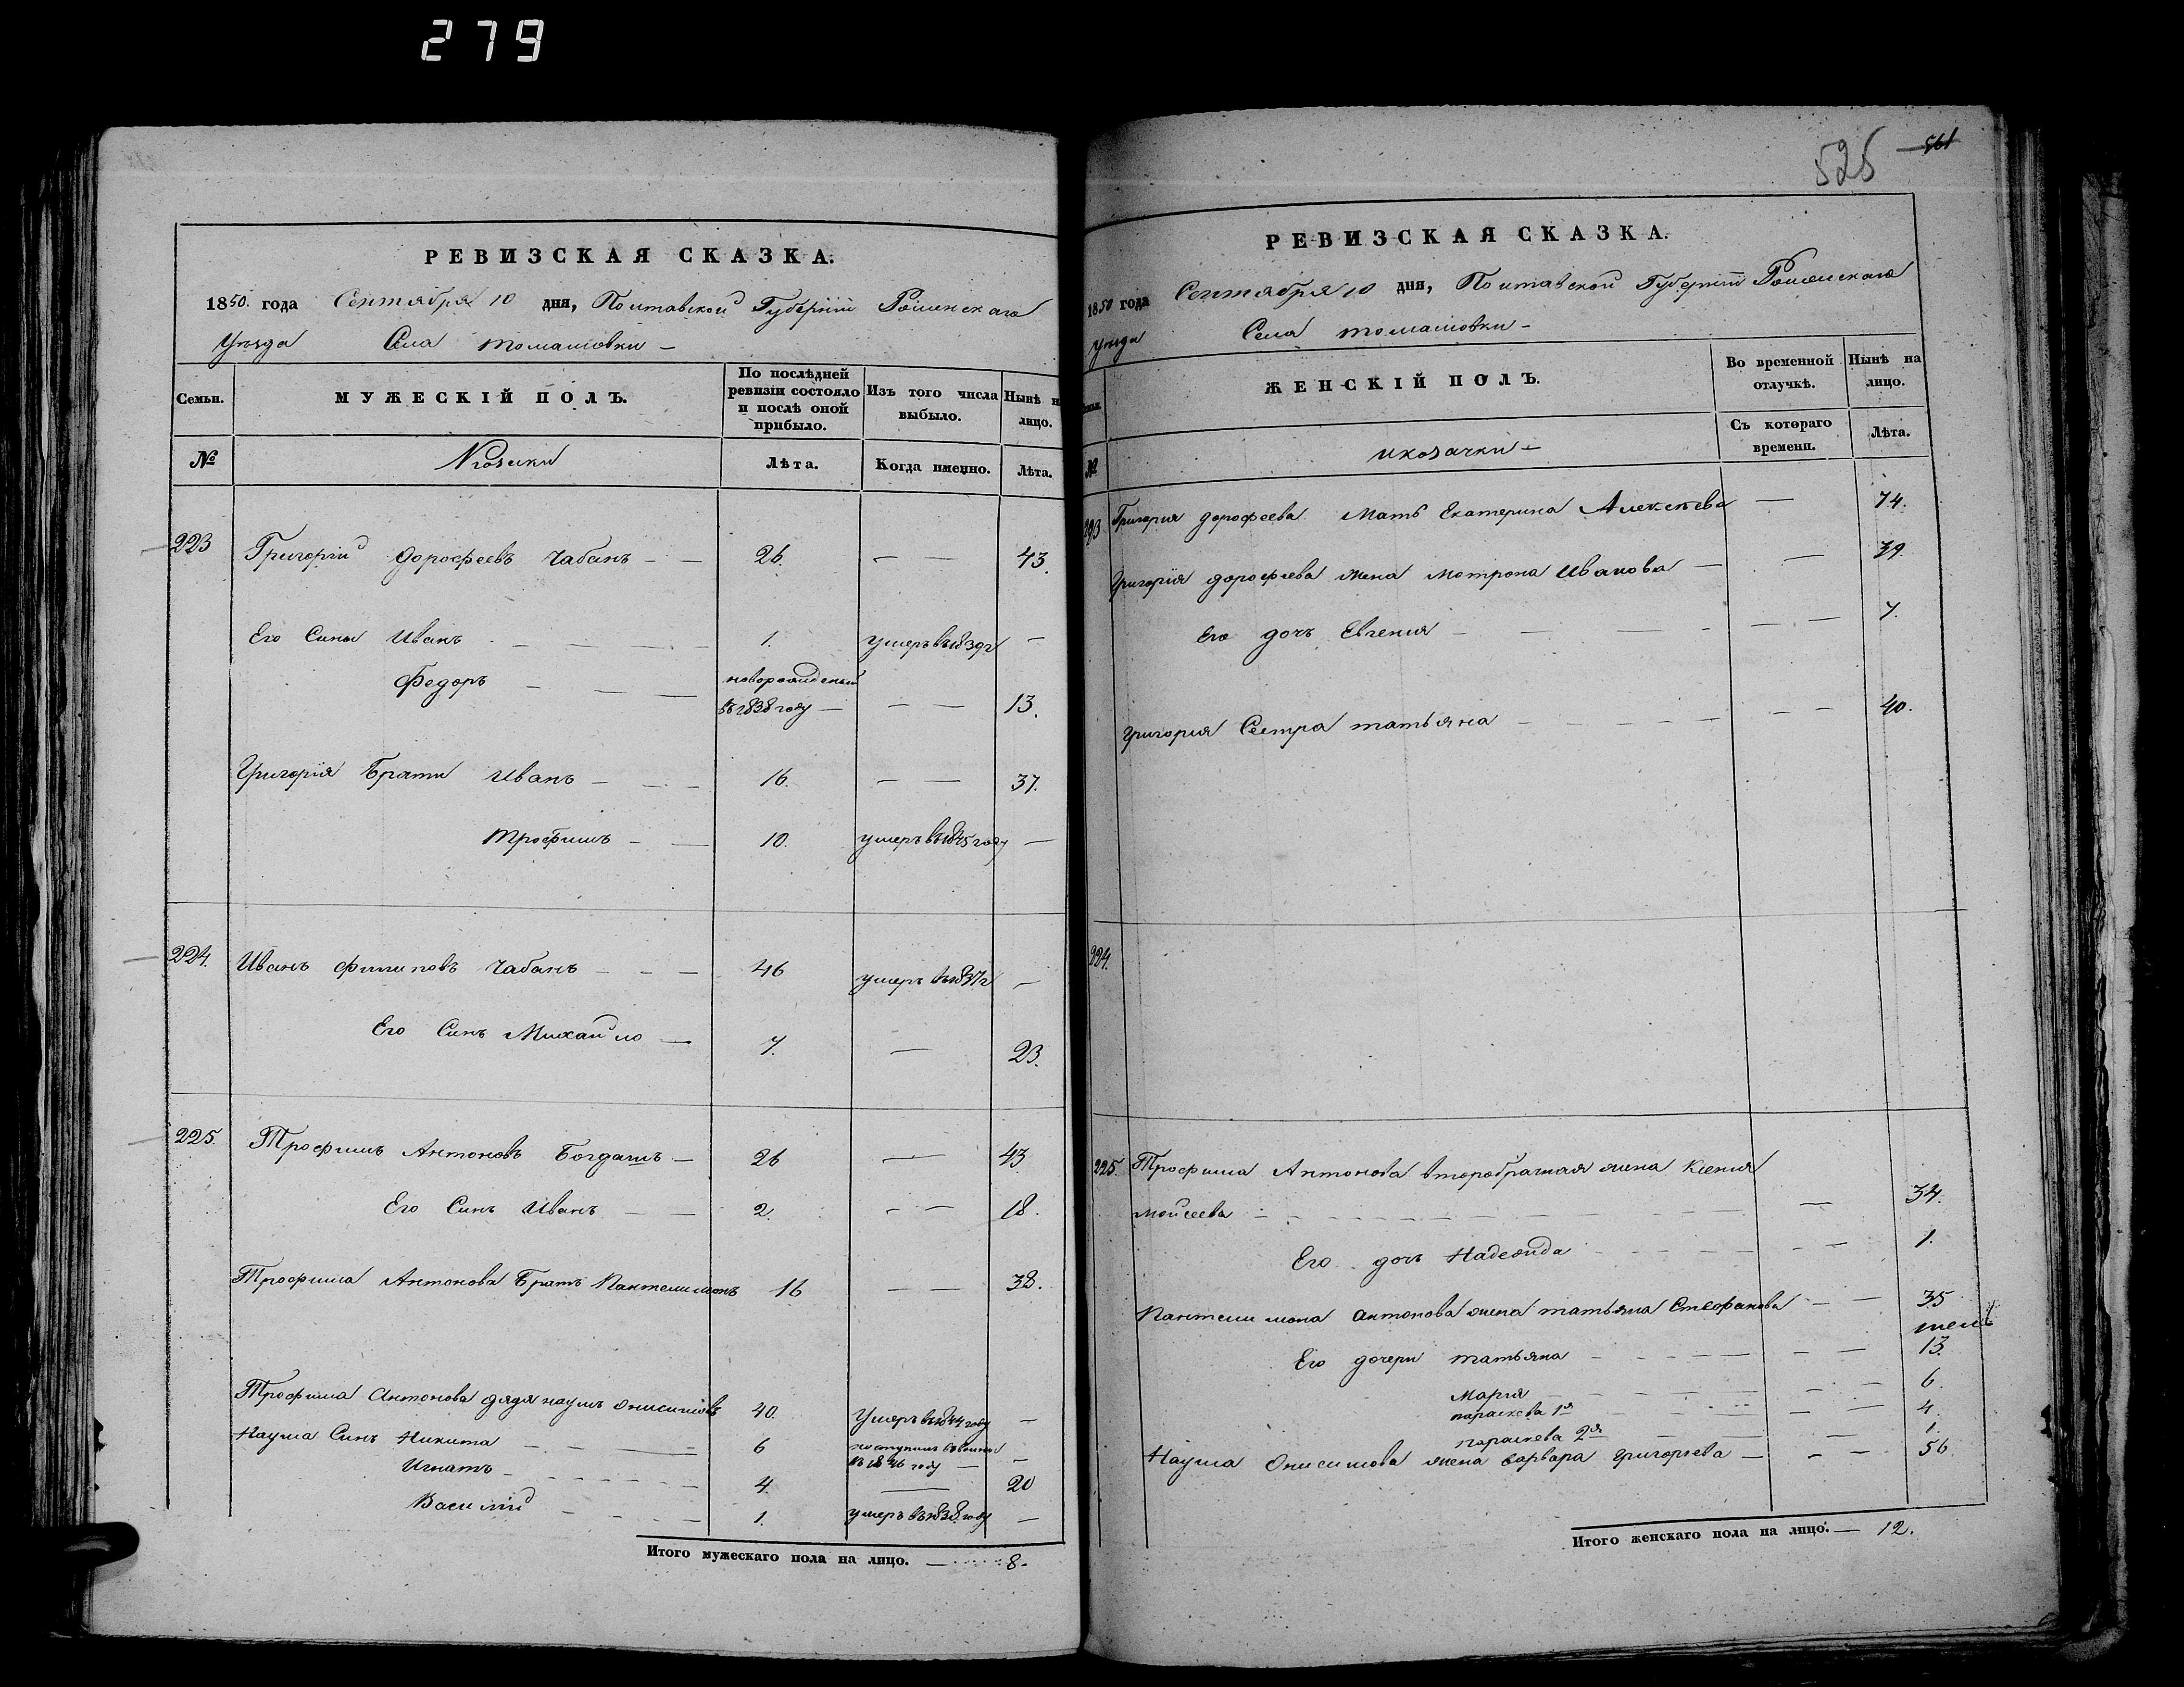 279
РЕВИЗСКАЯ СКАЗКА.
1850. года Сентября 10 дня, Полтавской Губернии Роменскаго
Уѣзда Села томашовки -
Семьи.
МУЖЕСКІЙ ПОЛЪ.
По послѣдней ревизіи состояло и послѣ оной прибыло.
Изъ того числа выбыло.
Нынѣ на лицо.
№
Лѣта.
Когда именно.
Лѣта.
223 Григорій дорофеевъ Чабанъ - - 26. - - 43.
Его Сины Иванъ - - - 1. умеръ въ 1839 г -
Федоръ - - - новорожденый
въ 1838 году - - - 13.
Григорія Брати Иванъ - - - 16. - - 37.
Трофимъ - - 10. умеръ въ 1845 году -
224. Иванъ филиповъ Чабанъ - - - 46 умеръ въ 1837 г -
Его Синъ Михайло - 7. - 23.
225. Трофимъ Антоновъ Богдашъ - 26 - 43
Его Синъ Иванъ - - 2. - - 18.
Трофима Антонова Братъ Пантелимонъ 16 - - 38.
Трофима Антонова дядя наумъ онисимовъ 40. Умеръ въ 1844 году -
Наума Синъ Никита - - 6 поступилъ
въ 1846 году - -
Игнатъ - - - 4. - 20
Василій - - - 1. умеръ въ 1838 году -
Итого мужескаго пола на лицо. - 8.
525 561
РЕВИЗСКАЯ СКАЗКА.
1850 года Сентября 10 дня, Полтавской Губерніи Роменскаго
Уѣзда Села томашовки -
ЖЕНСКІЙ ПОЛЪ.
Во временной отлучкѣ.
Нынѣ на лицо.
№
икозачки -
Съ котораго времени.
Лѣта.
223 Григория дорофеева Мать Екатерина Алексѣева - 74.
Григорія дорофеева жена мотрона Иванова - - 39.
Его дочъ Евгения - - - - - 7.
Григория Сестра татьяна - - - - - 40.
224.
225. Трофима Антонова второбрачная жена Ксения
Мойсеева - - - - 34.
Его дочъ Надежда - - - - 1.
Пантелимона антонова жена татьяна Стефанова - - 35
Его дочери татьяна - - - - 13.
Мария - - - - 6.
параскева 1я - - - 4.
параскева 2я - - 1.
Наума Онисимова жена варвара григорьева - - - 56
Итого женскаго пола на лицо. - 12.